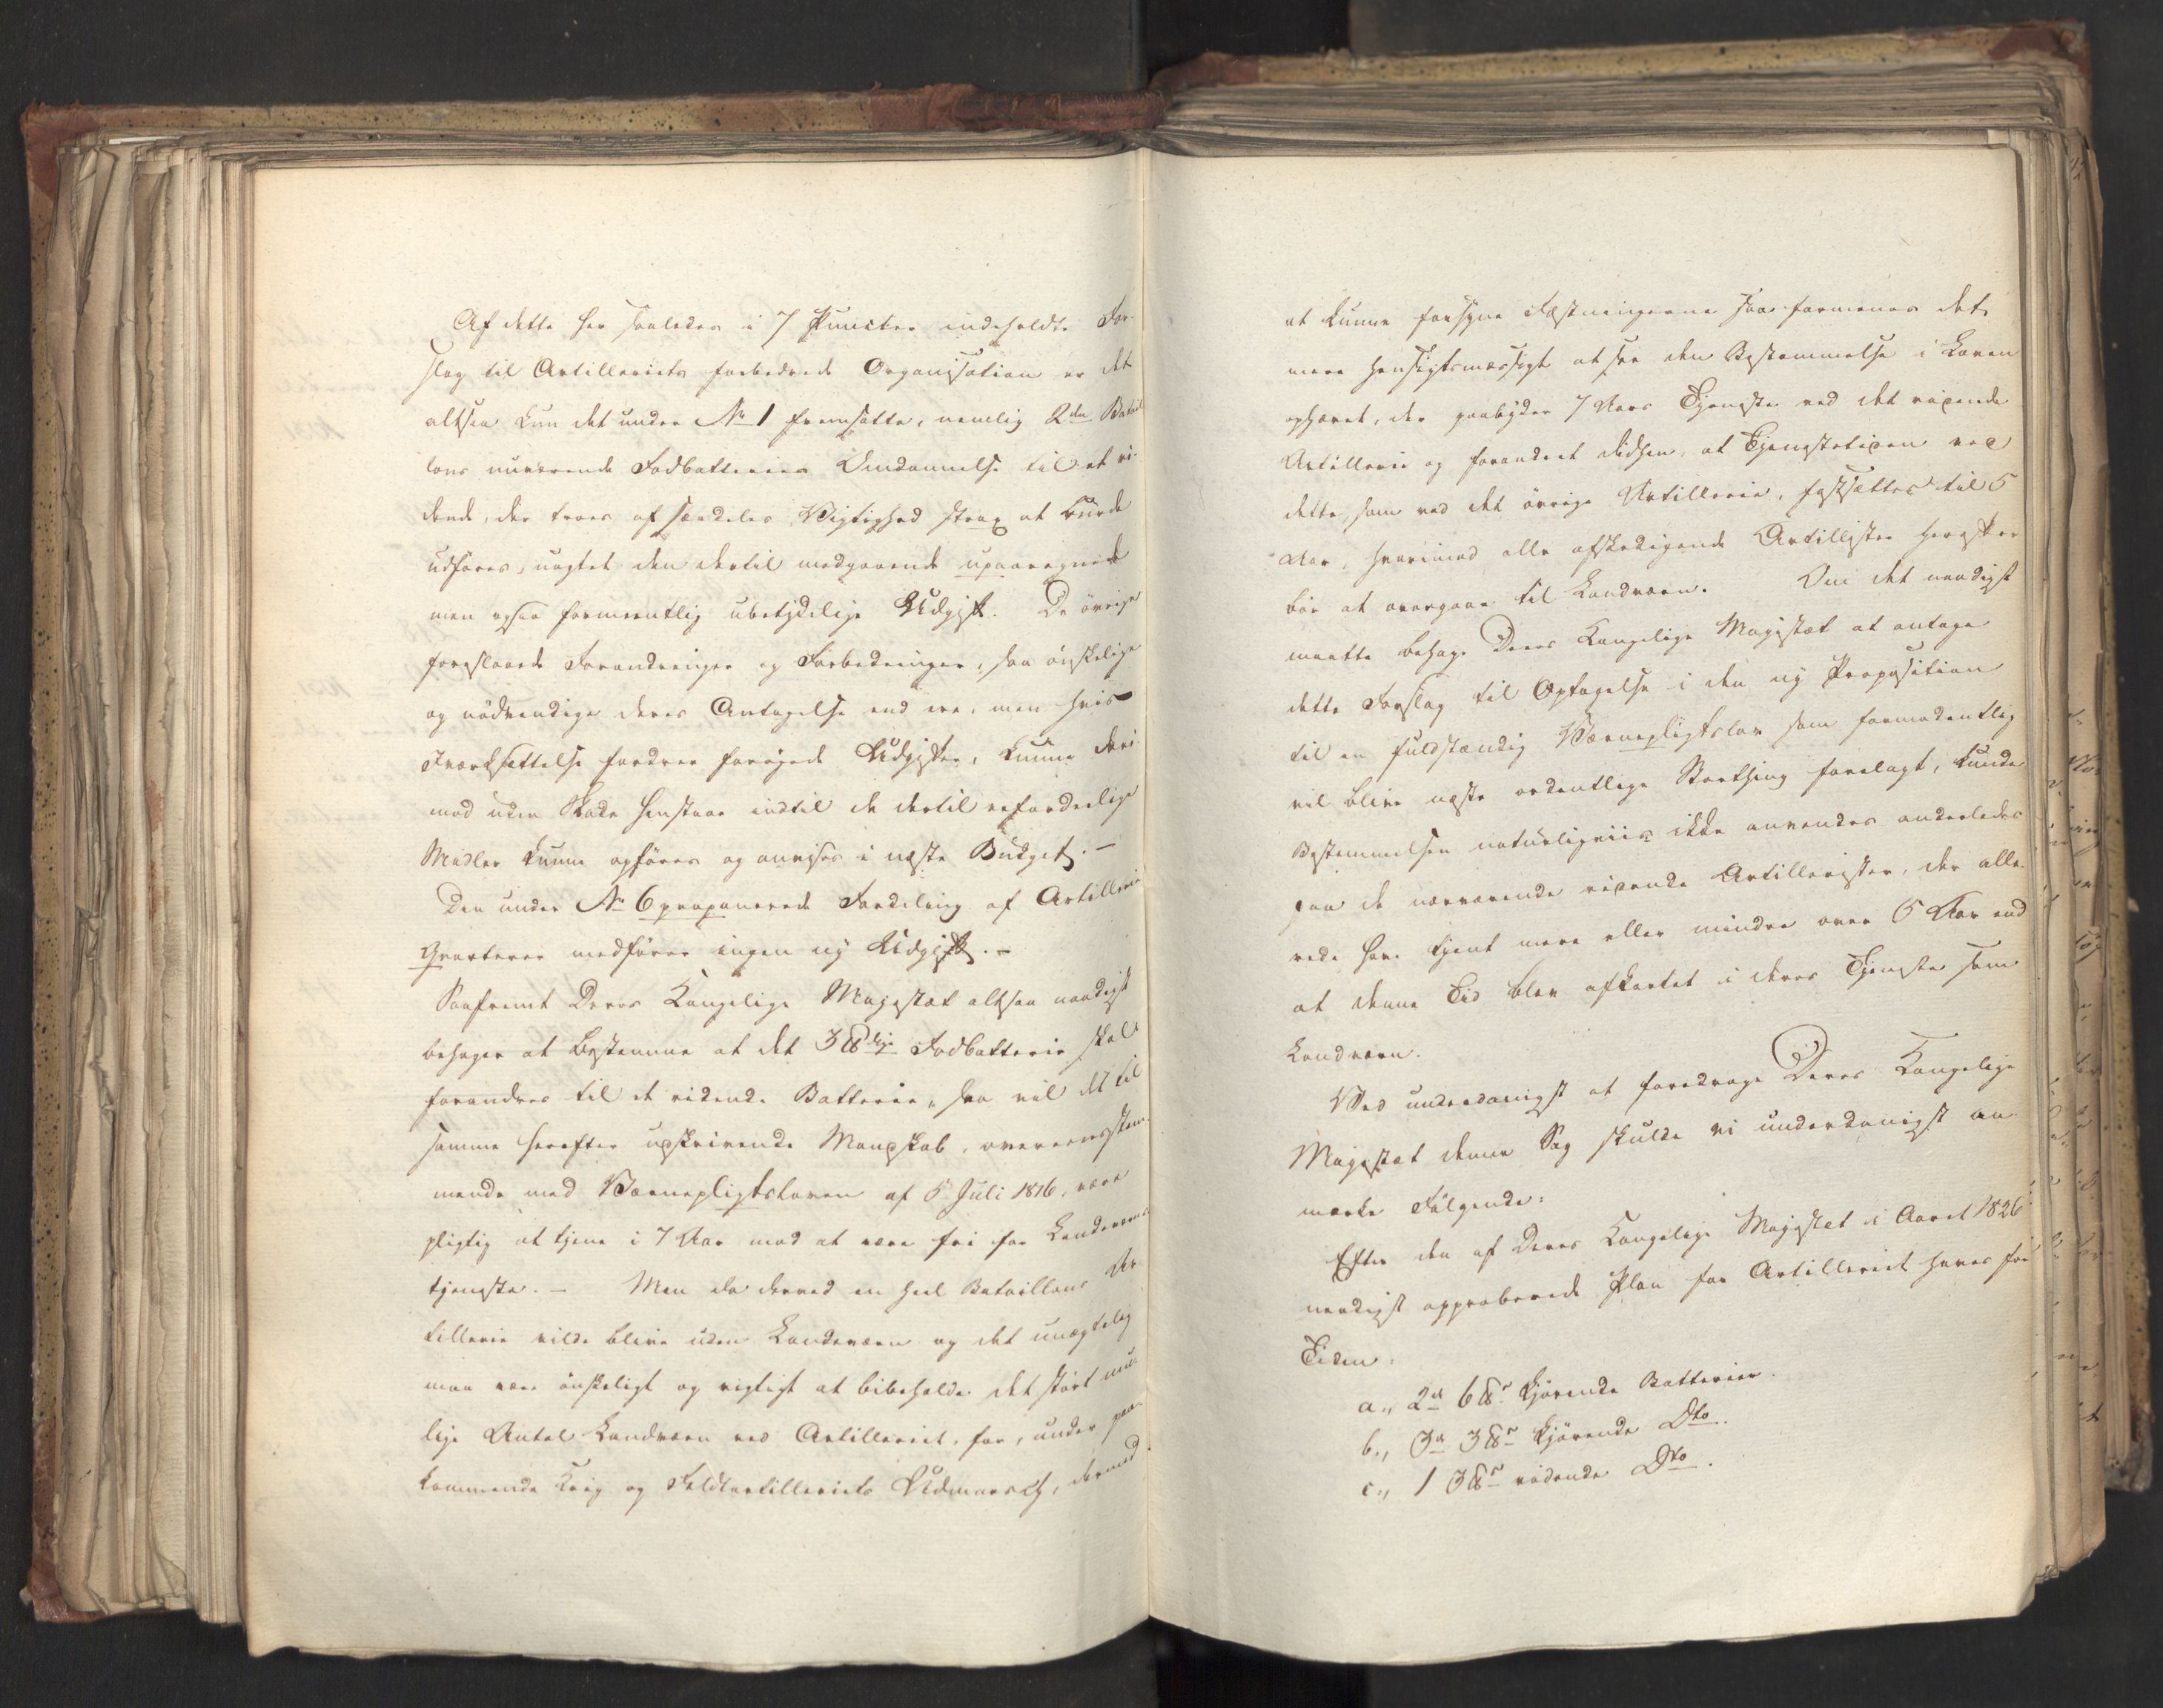 Af dette her saaledes i 7 Puncter indeholdte For-
slag til Artilleriets forbedrede Organisation er det
altsaa kun det under No 1 fremsatte, nemlig 2den Batail-
lons nuværende Fodbatteries Omdannelse til et ri-
dende, der troes af særdeles Vigtighed strax at burde
udføres, uagtet den dertil medgaaende upaaregnede
men ogsaa formeentlig ubetydelige Udgift. De övrige
foreslaaede Forandringer og Forbedringer, saa önskelige
og nödvendige deres Antagelse end ere, men hvis
Iværksættelse fordrer forögede Udgifter, kunne deri-
mod uden Skade henstaae indtil de dertil erforderlige
Midler kunne opföres og anvises i næste Budget. —
Den under No 6 proponerede Fordeling af Artillerie
Qvarterer medförer ingen ny Udgift. —
Saafremt Deres Kongelige Majestæt altsaa naadigst
behager at bestemme at det 3 ℔dige Fodbatterie skal
forandres til et ridende Batterie, saa vil det til
samme herefter udskrivende Mandskab, overeensstem-
mende med Værnepligtsloven af 5 Juli 1816, være
pligtig at tjene i 7 Aar mod at være fri for Landeværns-
tjeneste. — Men da derved en heel Bataillons Ar-
tillerie vilde blive uden Landeværn og det unægtelig
maa være önskeligt og vigtigt at bibeholde det störst mu-
lige Antal Landværn ved Artilleriet, for, under paa-
kommende Krig og Feldtartilleriets Udmarsch, dermed
at kunne forsyne Fæstningerne saa formenes det
mere hensigtsmæssigt at see den Bestemmelse i Loven
ophævet, der paabyder 7 Aars Tjeneste ved det ridende
Artillerie og forandret didhen, at Tjenestetiden ved
dette, som ved det övrige Artillerie, fastsættes til 5
Aar, hvorimod alle afskedigende Artillister herefter
bör at overgaae til Landværn. Om det naadigst
maatte behage Deres Kongelige Majestæt at antage
dette Forslag til Optagelse i den ny Proposition
til en fuldstændig Værnepligtslov som formodentlig
vil blive næste ordentlige Storthing forelagt, kunde
Bestemmelsen naturligviis ikke anvendes anderledes
paa de nærværende ridende Artillerister, der alle-
rede have tjent mere eller mindre over 5 Aar end
at denne Tid blev afkortet i deres Tjeneste som
Landværn.
Ved underdanigst at foredrage Deres Kongelige
Majestæt denne Sag skulde vi underdanigst an-
mærke Fölgende:
Efter den af Deres Kongelige Majestæt i Aaret 1826
naadigst approberede Plan for Artilleriet haves for
Tiden:
a., 2de 6 ℔s kjörende Batterier.
b., 3de 3 ℔s kjörende Dto.
c., 1 3 ℔s ridende Dto.